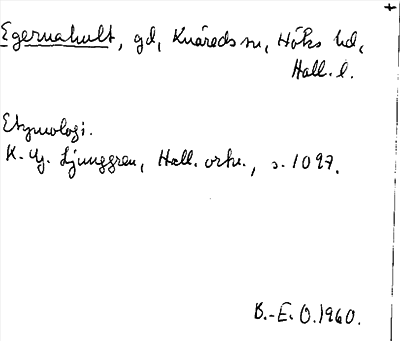 Egernahult, gd, Knäreds sn, Höks hd,
Hall. l.
Etymologi.
K. G. Ljunggren, Hall. ortn., s. 1097.
B.-E. O. 1960.